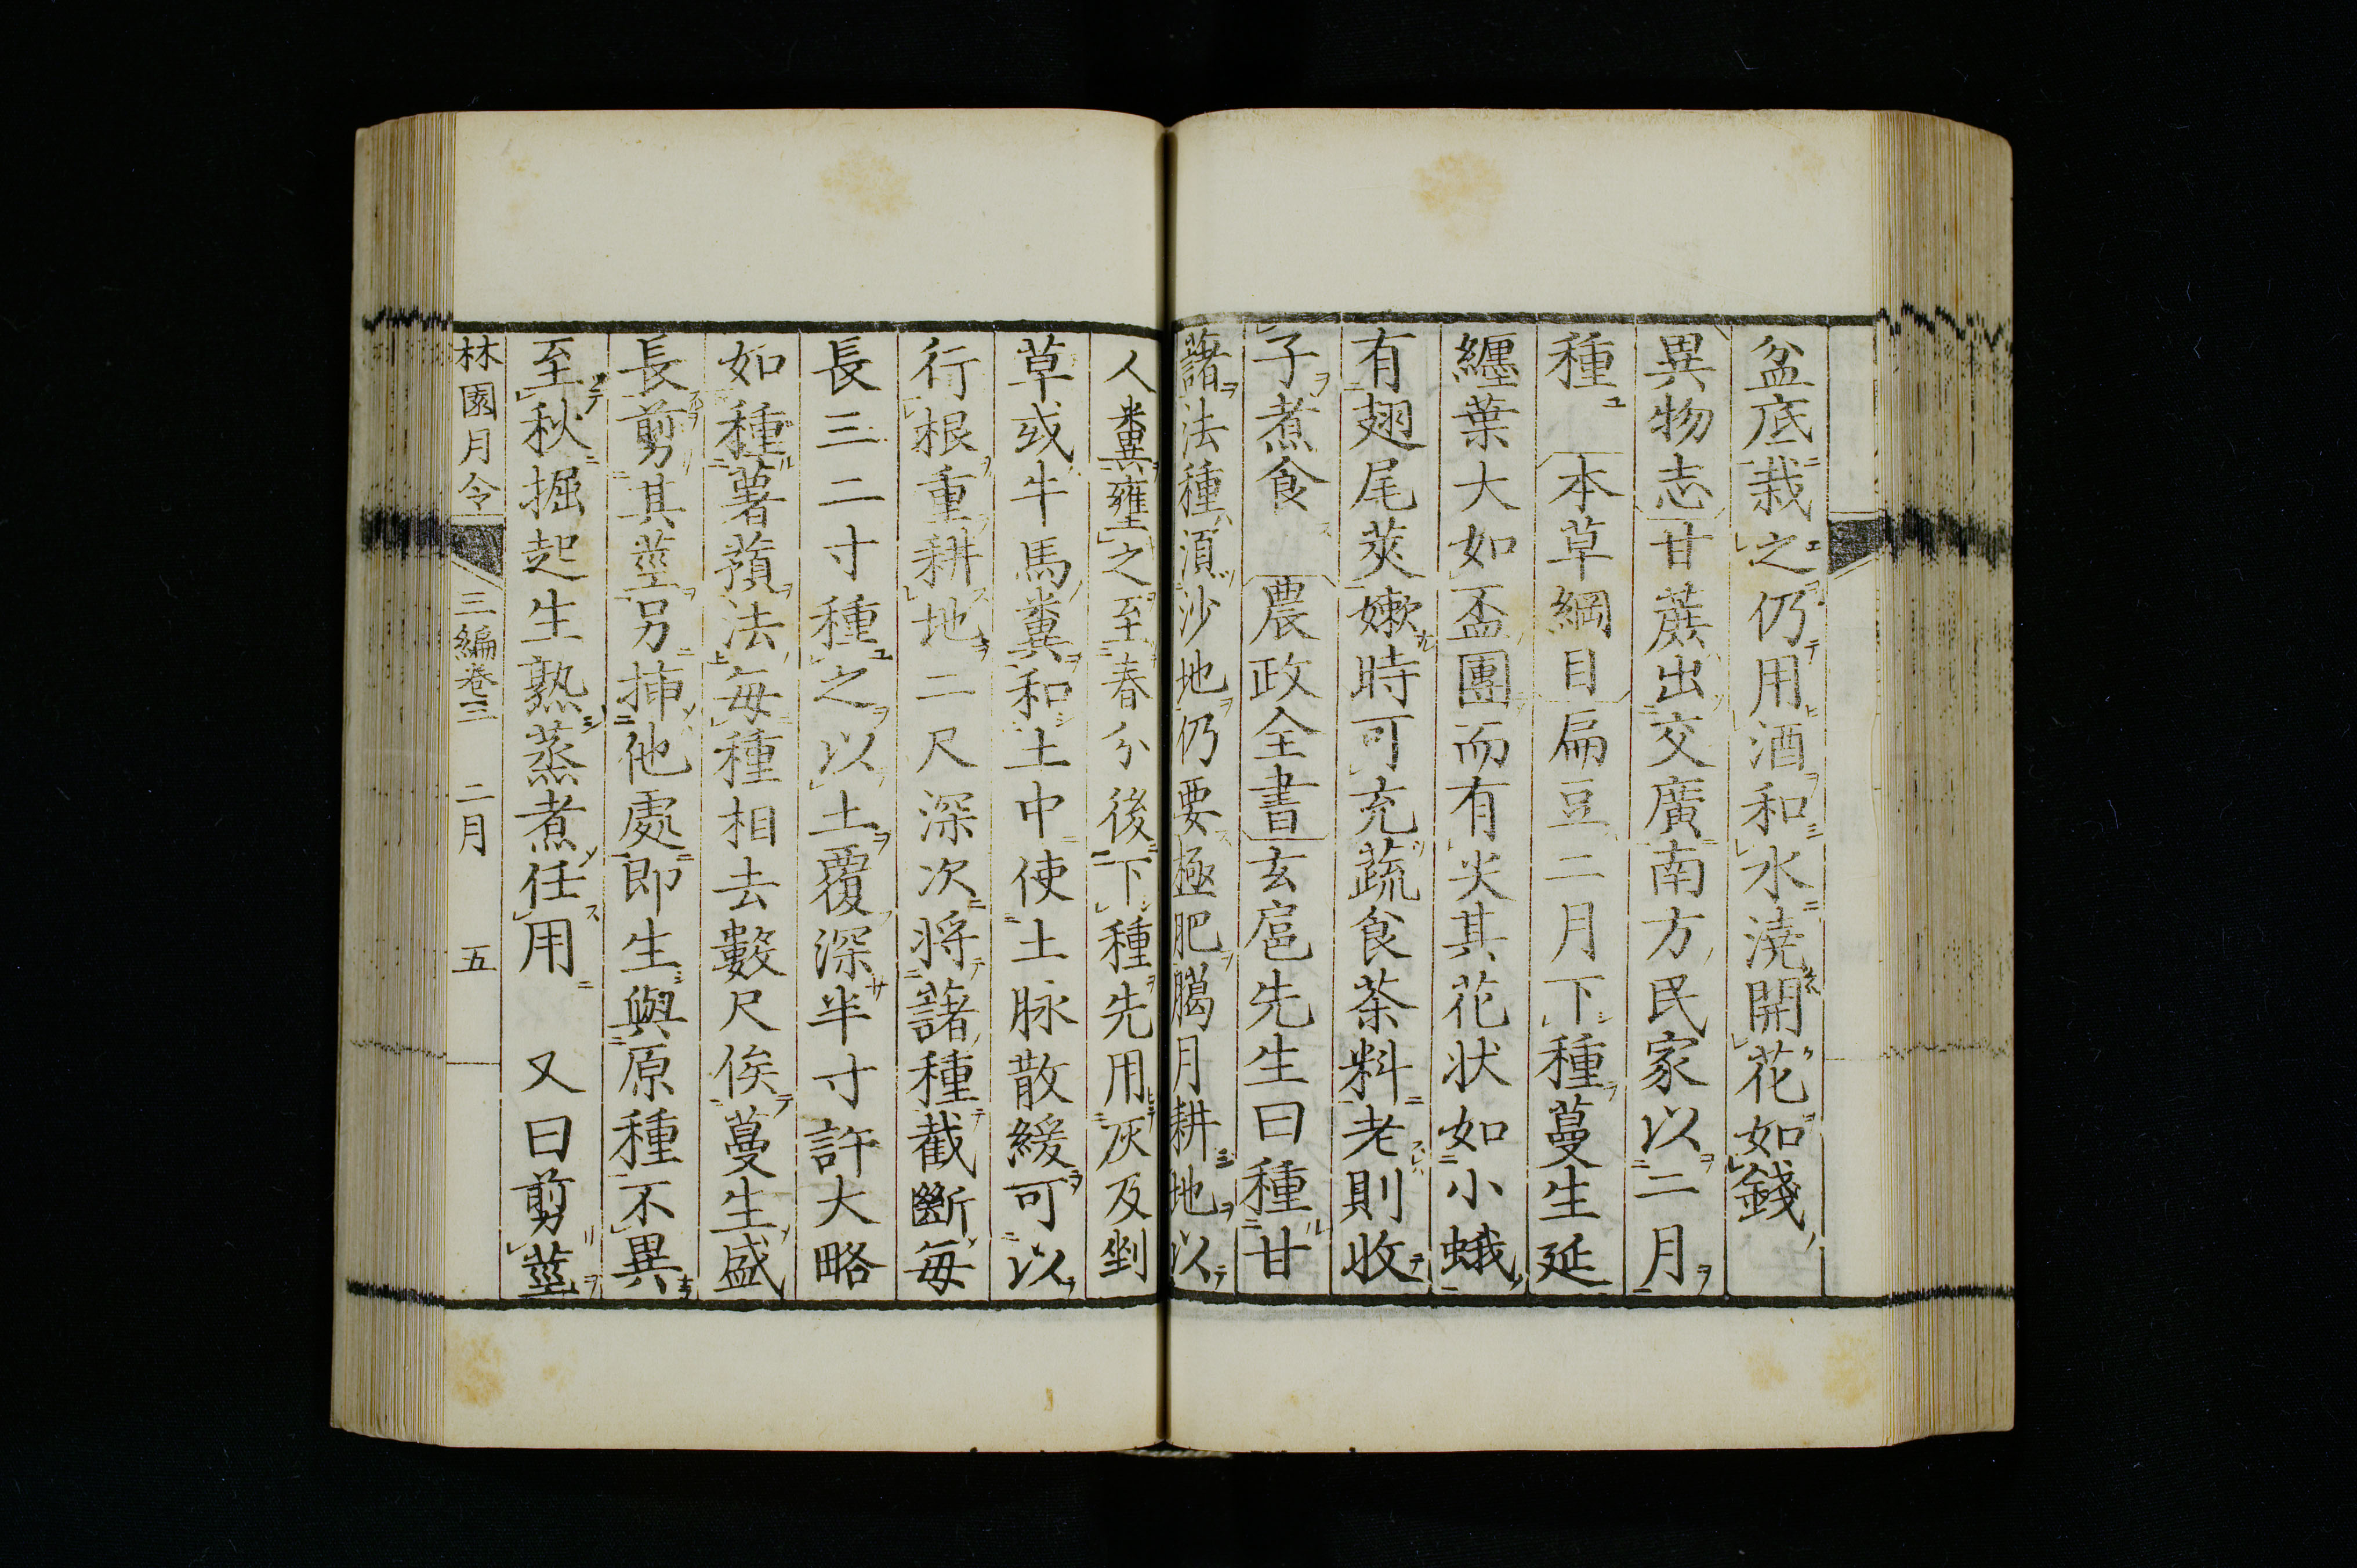 盆底栽之仍用酒和水澆開花如錢
異物志甘蔗出交廣南方民家以二月
種　本草綱目扁豆二月下種蔓生延
纏葉大如盃團而有尖其花状如小蛾
有翅尾莢嫩時可充蔬食茶料老則收
子煮食　農政全書玄扈先生曰種甘
藷法種須沙地仍要極肥臈月耕地以
人糞壅之至春分後下種先用灰及剉
草或牛馬糞和土中使土脉散緩可以
行根重耕地二尺深次将藷種截斷毎
長三二寸種之以土覆深半寸許大略
如種薯蕷法毎種相去數尺俟蔓生盛
長剪其莖另挿他處即生與原種不異
至秋掘起生熟蒸煮任用　又曰剪莖
林園月令　三編卷三　二月　五